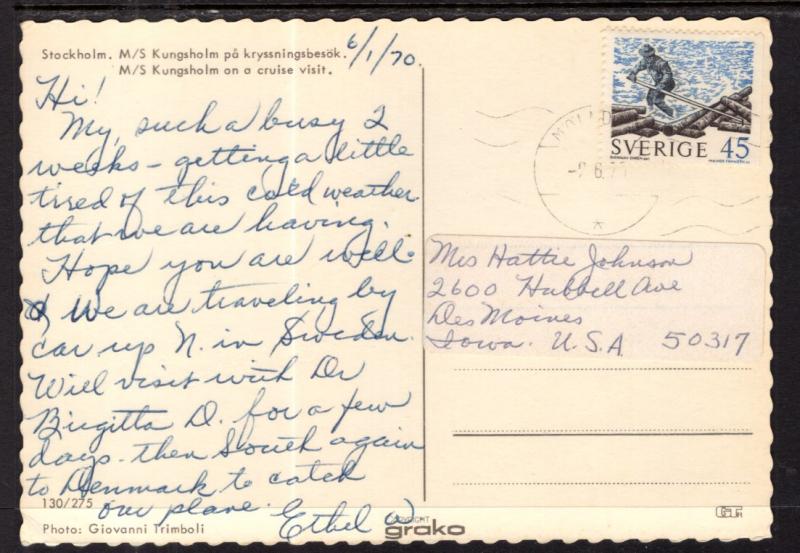 Stockholm. M/S Kungsholm på kryssningsbesök.
M/S Kungsholm on a cruise visit.
6/1/70.
Hi!
My, such a busy 2
weeks - getting a little
tired of this cold weather
that we are having.
Hope you are well.
We are traveling by
car up N. in Sweden.
Will visit with Dr
Birgitta D. for a few
days. then South again
to Denmark to catch
our plane. Ethel
130/275
Photo: Giovanni Trimboli
COPYRIGHT
grako
SVERIGE 45
Mrs Hattie Johnson
2600 Hubbell Ave
Des Moines
Iowa. U.S.A 50317